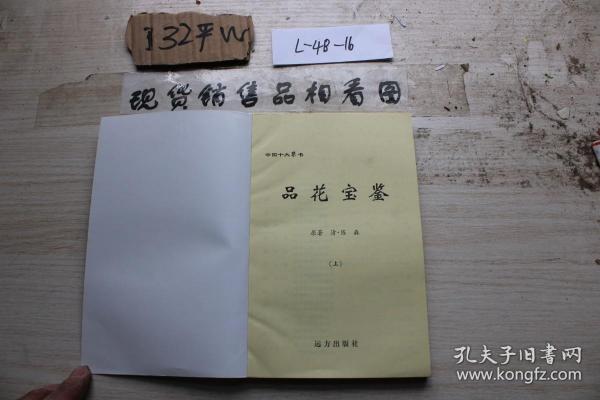 132平W
L-48-16
现货销售品相看图
中国十大禁书
品花宝鉴
原著 清·陈森
(上)
远方出版社
孔夫子旧书网
www.kongfz.com